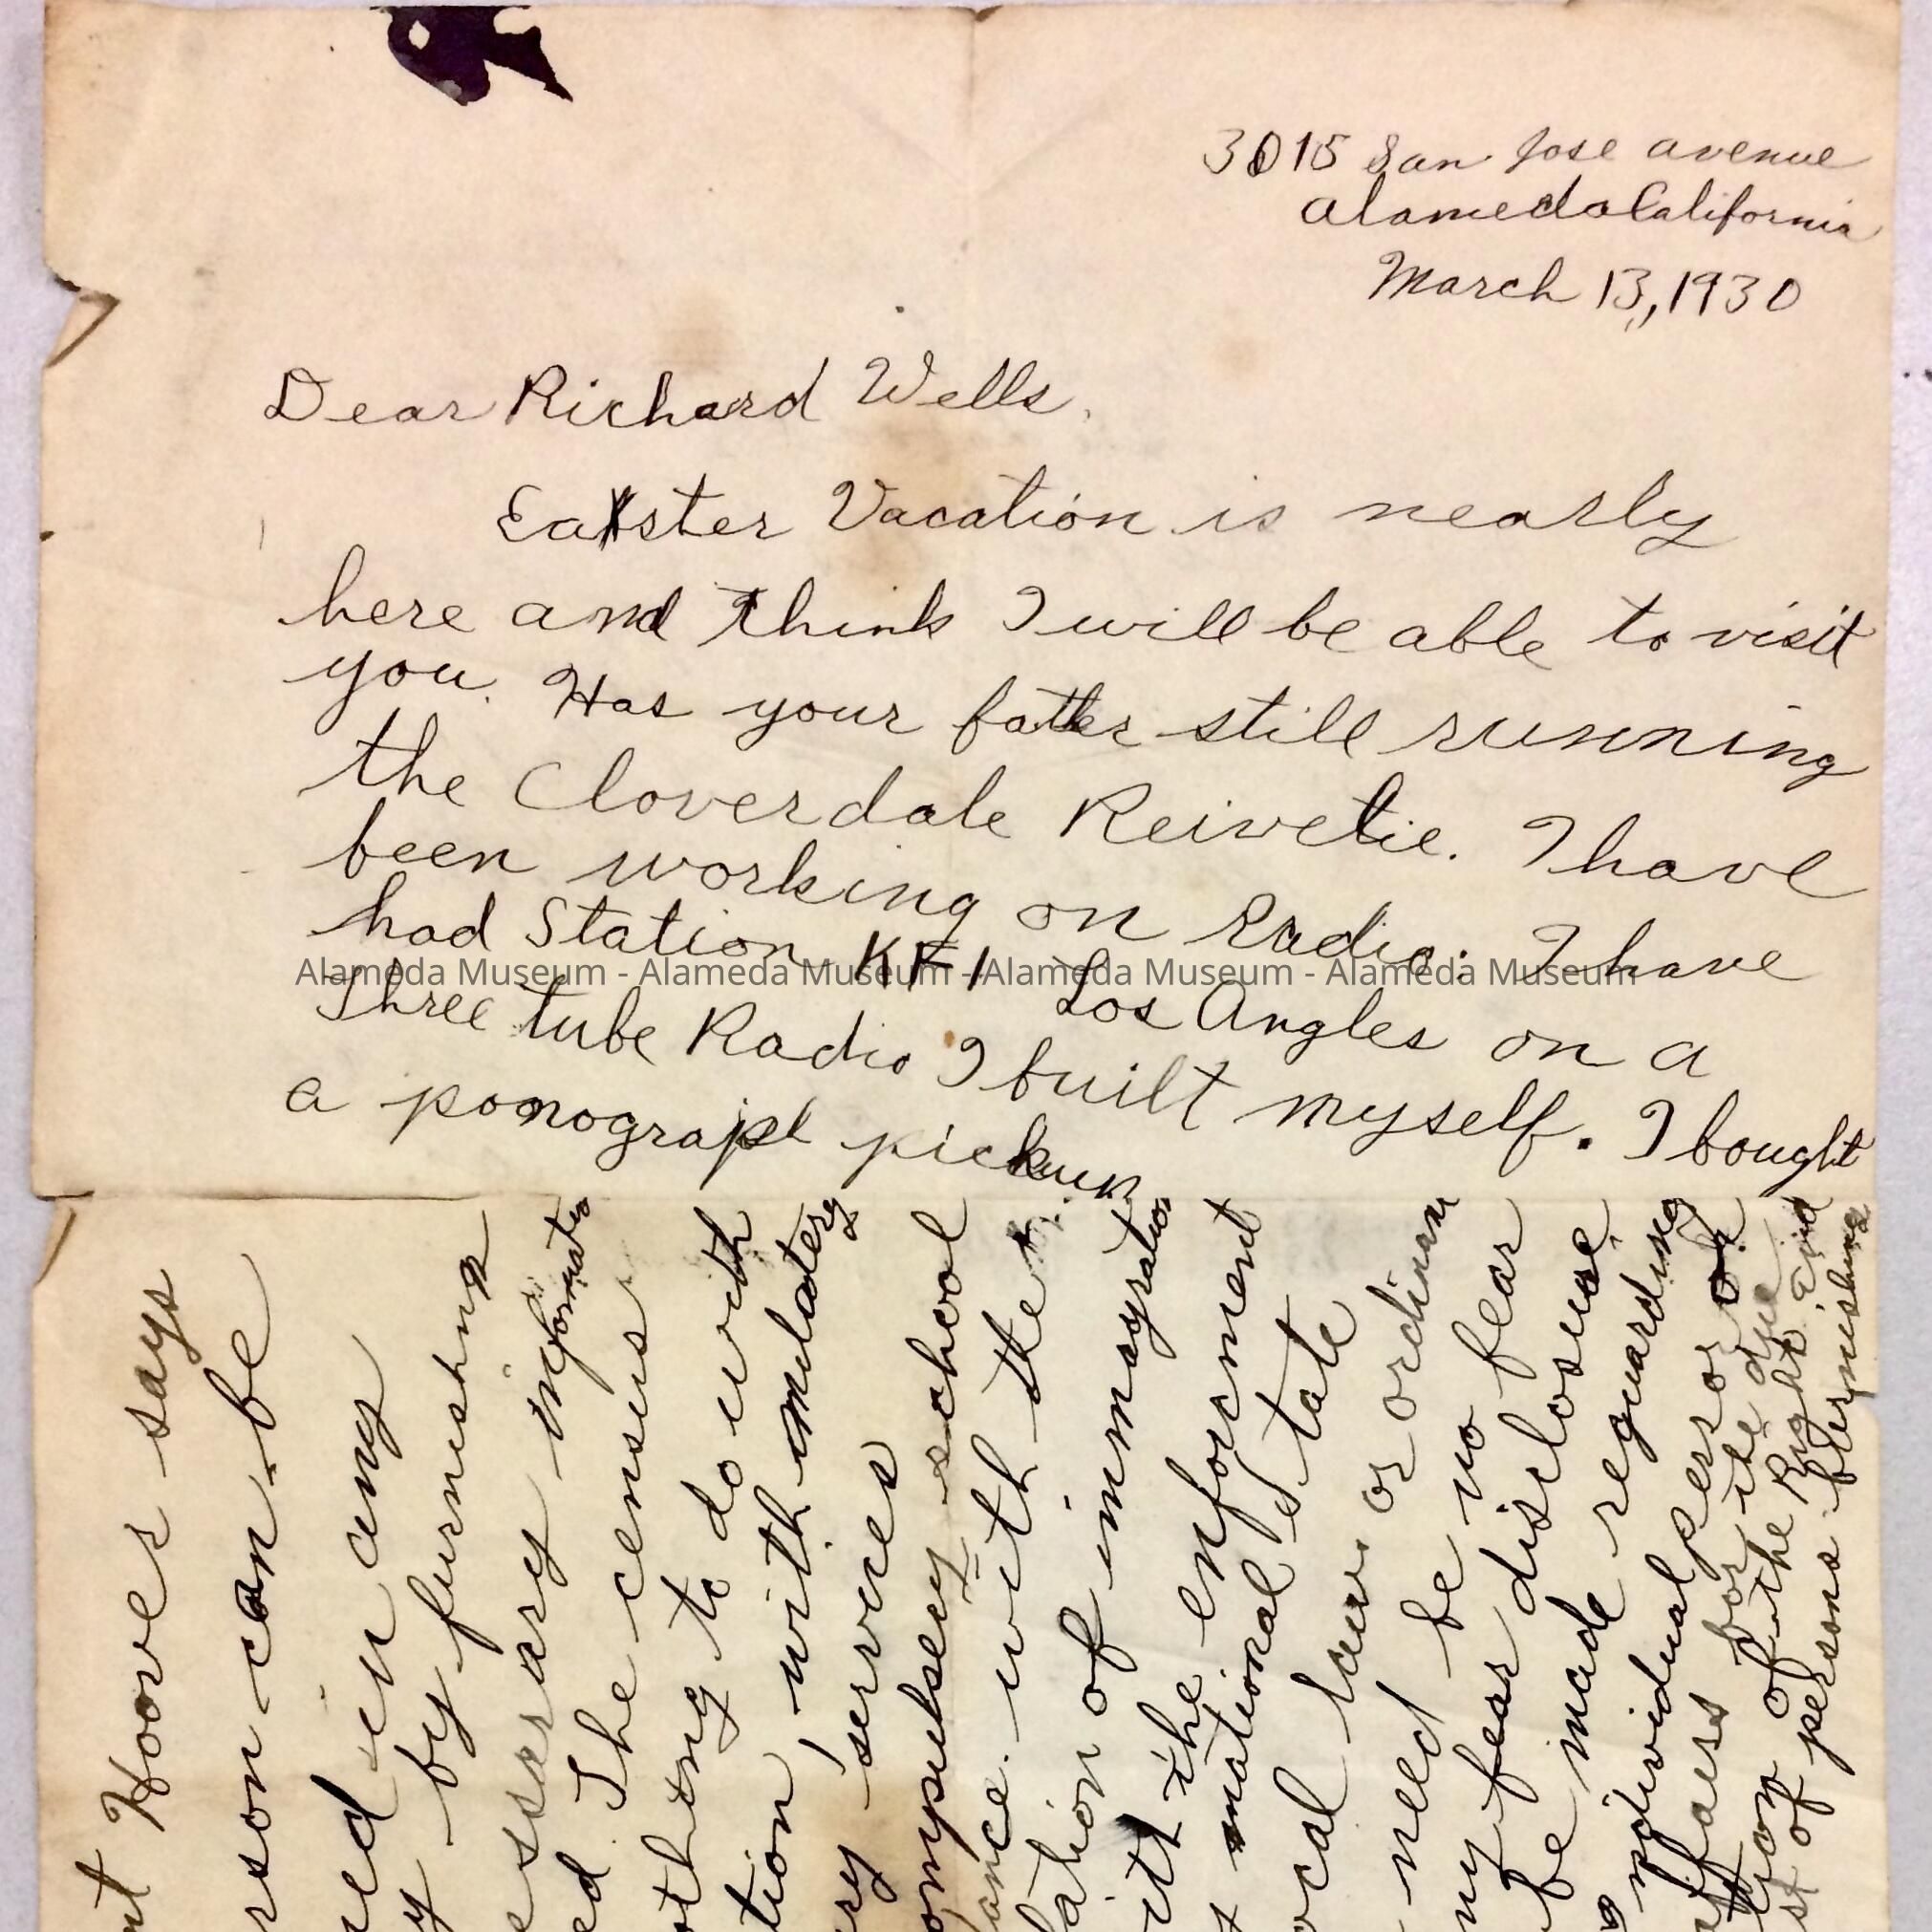 3015 San Jose avenue
Alameda California
March 13,, 1930
Dear Richard Wells,
Eaxster Vacation is nearly
here and think I will be able to visit
you. Has your father still running
the Cloverdale Reivelie. I have
been working on Radio. I have
had Station KFI Los Angles on a
Three tube Radio I built myself. I bought
a ponograph pickup
Alameda Museum - Alameda Museum - Alameda Museum - Alameda Museum
Hoover says
can be
in any
by furnishing
information
The census
to do with
with
services
school
with the
of immagration
the enforcment
national State
or ordinan
need be no fear
my fear disclosure
be made reguarding
individual person or
for the
of the Right and
of persons furnishing